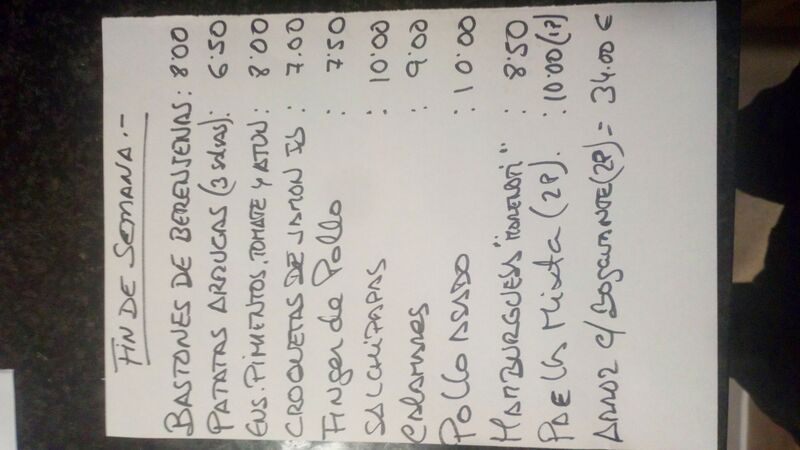 FIN DE SEMANA.-
BASTONES DE BERENJENAS: 8'00
PATATAS ARRUGAS (3 salsas): 6'50
ENS. PIMIENTOS, TOMATE Y ATUN: 8'00
CROQUETAS DE JAMON IB : 7.00
FINGER de Pollo : 7'50
SALCHIPAPAS : 10'00
CALAMARES : 9'00
Pollo ASADO : 10'00
HAMBURGUESA : 8'50
PAELLA Mixta (2P). : 10'00 (1P)
ARROZ c/ Bogavante (2P) = 34.00 €